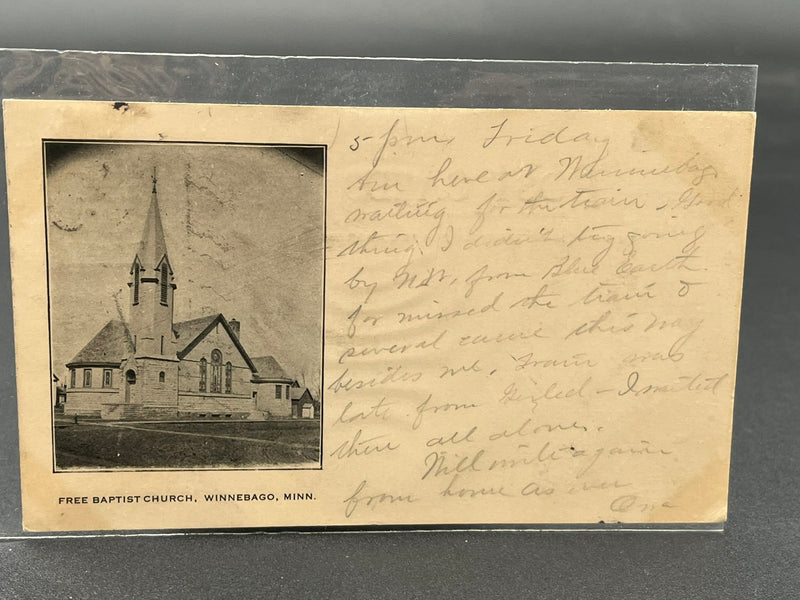 5 pm, Friday
Am here at Winnebago
waiting for the train. Good
thing I didn't try going
by N.W. from Blue Earth
for missed the train &
several came this way
besides me. Train was
late from - I waited
there all alone.
Will write again
from home as ever
FREE BAPTIST CHURCH, WINNEBAGO, MINN.